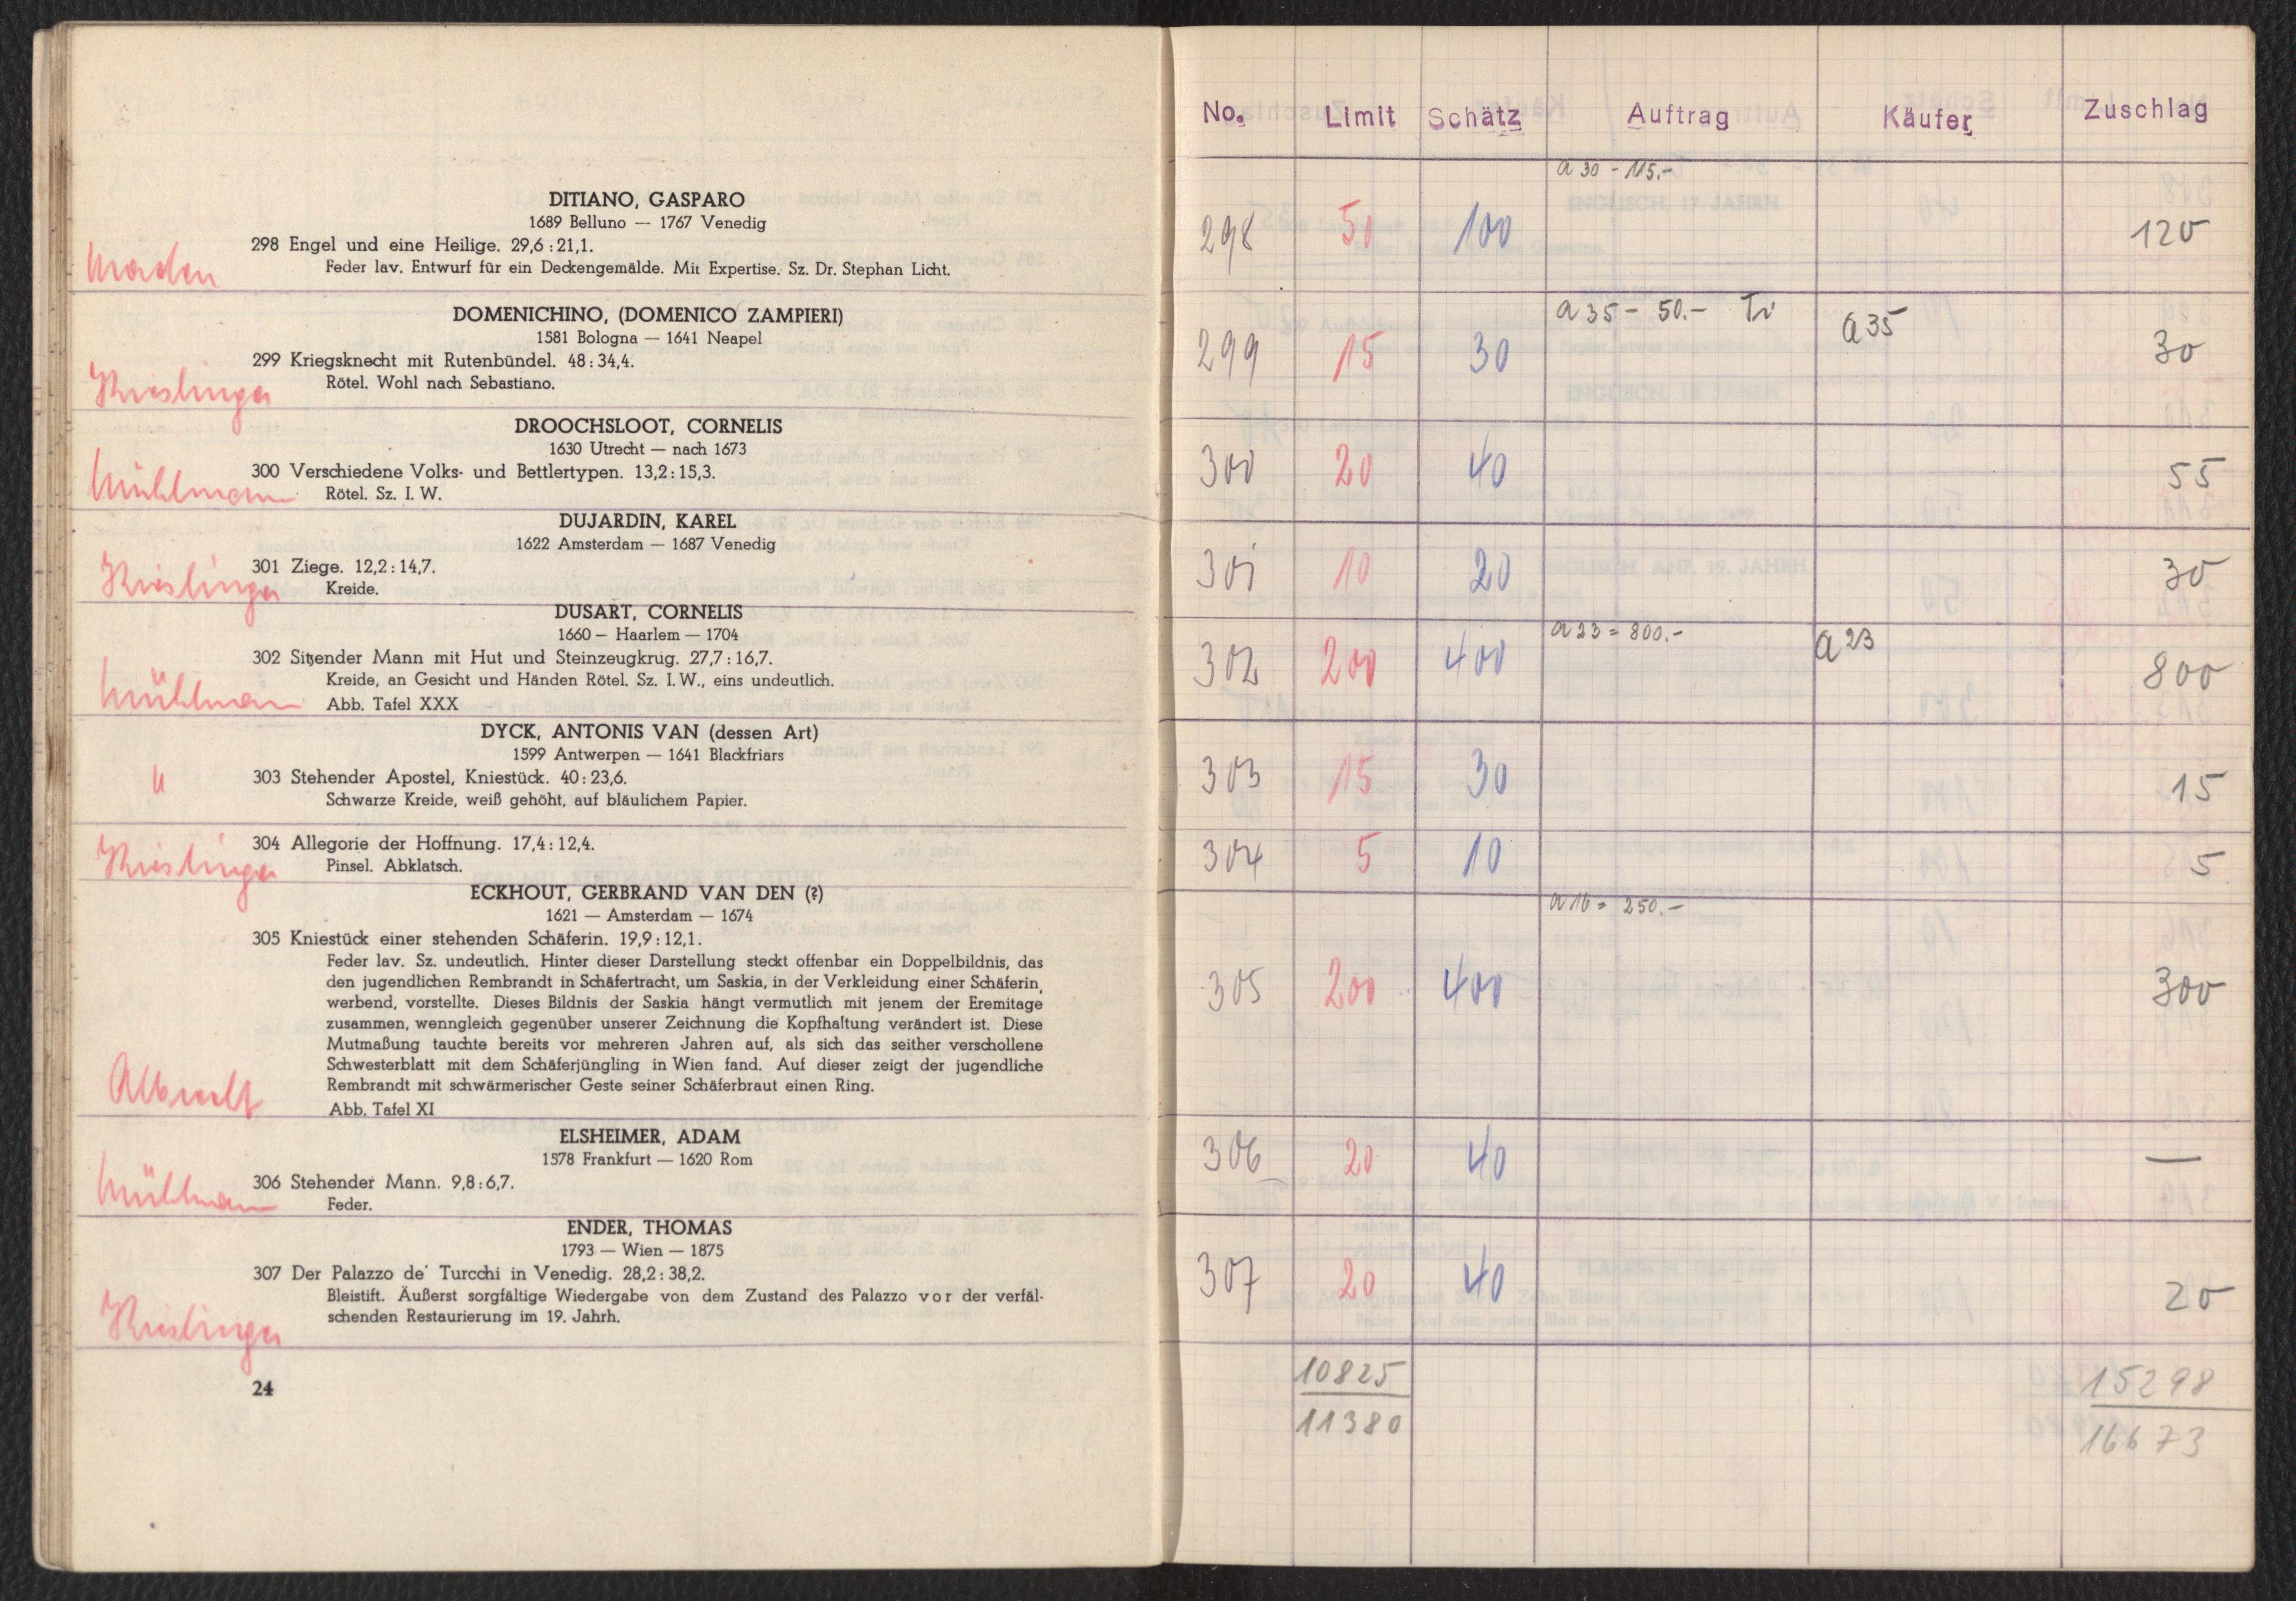 DITIANO, GASPARO
1689 Belluno — 1767 Venedig
298 Engel und eine Heilige. 29,6 : 21,1.
Feder lav. Entwurf für ein Deckengemälde. Mit Expertise. Sz. Dr. Stephan Licht.
DOMENICHINO, (DOMENICO ZAMPIERI)
1581 Bologna — 1641 Neapel
299 Kriegsknecht mit Rutenbündel. 48 : 34,4.
Rötel. Wohl nach Sebastiano.
Kieslinger
DROOCHSLOOT, CORNELIS
1630 Utrecht — nach 1673
300 Verschiedene Volks- und Bettlertypen. 13,2 : 15,3.
Mühlmann Rötel. Sz. I. W.
DUJARDIN, KAREL
1622 Amsterdam — 1687 Venedig
301 Ziege. 12,2 : 14,7.
Kieslinger Kreide.
DUSART, CORNELIS
1660 — Haarlem — 1704
302 Sitzender Mann mit Hut und Steinzeugkrug. 27,7 : 16,7.
Kreide, an Gesicht und Händen Rötel. Sz. I. W., eins undeutlich.
Mühlmann Abb. Tafel XXX
DYCK, ANTONIS VAN (dessen Art)
1599 Antwerpen — 1641 Blackfriars
303 Stehender Apostel, Kniestück. 40 : 23,6.
Schwarze Kreide, weiß gehöht, auf bläulichem Papier.
304 Allegorie der Hoffnung. 17,4 : 12,4.
Kieslinger Pinsel. Abklatsch.
ECKHOUT, GERBRAND VAN DEN (?)
1621 — Amsterdam — 1674
305 Kniestück einer stehenden Schäferin. 19,9 : 12,1.
Feder lav. Sz. undeutlich. Hinter dieser Darstellung steckt offenbar ein Doppelbildnis, das
den jugendlichen Rembrandt in Schäfertracht, um Saskia, in der Verkleidung einer Schäferin,
werbend, vorstellte. Dieses Bildnis der Saskia hängt vermutlich mit jenem der Eremitage
zusammen, wenngleich gegenüber unserer Zeichnung die Kopfhaltung verändert ist. Diese
Mutmaßung tauchte bereits vor mehreren Jahren auf, als sich das seither verschollene
Schwesterblatt mit dem Schäferjüngling in Wien fand. Auf dieser zeigt der jugendliche
Rembrandt mit schwärmerischer Geste seiner Schäferbraut einen Ring.
Abb. Tafel XI
ELSHEIMER, ADAM
1578 Frankfurt — 1620 Rom
306 Stehender Mann. 9,8 : 6,7.
Mühlmann Feder.
ENDER, THOMAS
1793 — Wien — 1875
307 Der Palazzo de' Turcchi in Venedig. 28,2 : 38,2.
Bleistift. Äußerst sorgfältige Wiedergabe von dem Zustand des Palazzo vor der verfäl-
schenden Restaurierung im 19. Jahrh.
Kieslinger
24
No. Limit Schätz Auftrag Käufer Zuschlag
a 30 - 115.-
298 50 100 120
a 35 - 50.- Tr a 35
299 15 30 30
300 20 40 55
301 10 20 30
a 23 = 800.- a 23
302 200 400 800
303 15 30 15
304 5 10 5
a 16 = 250.-
305 200 400 300
306 20 40 —
307 20 40 20
10825 15298
11380 16673